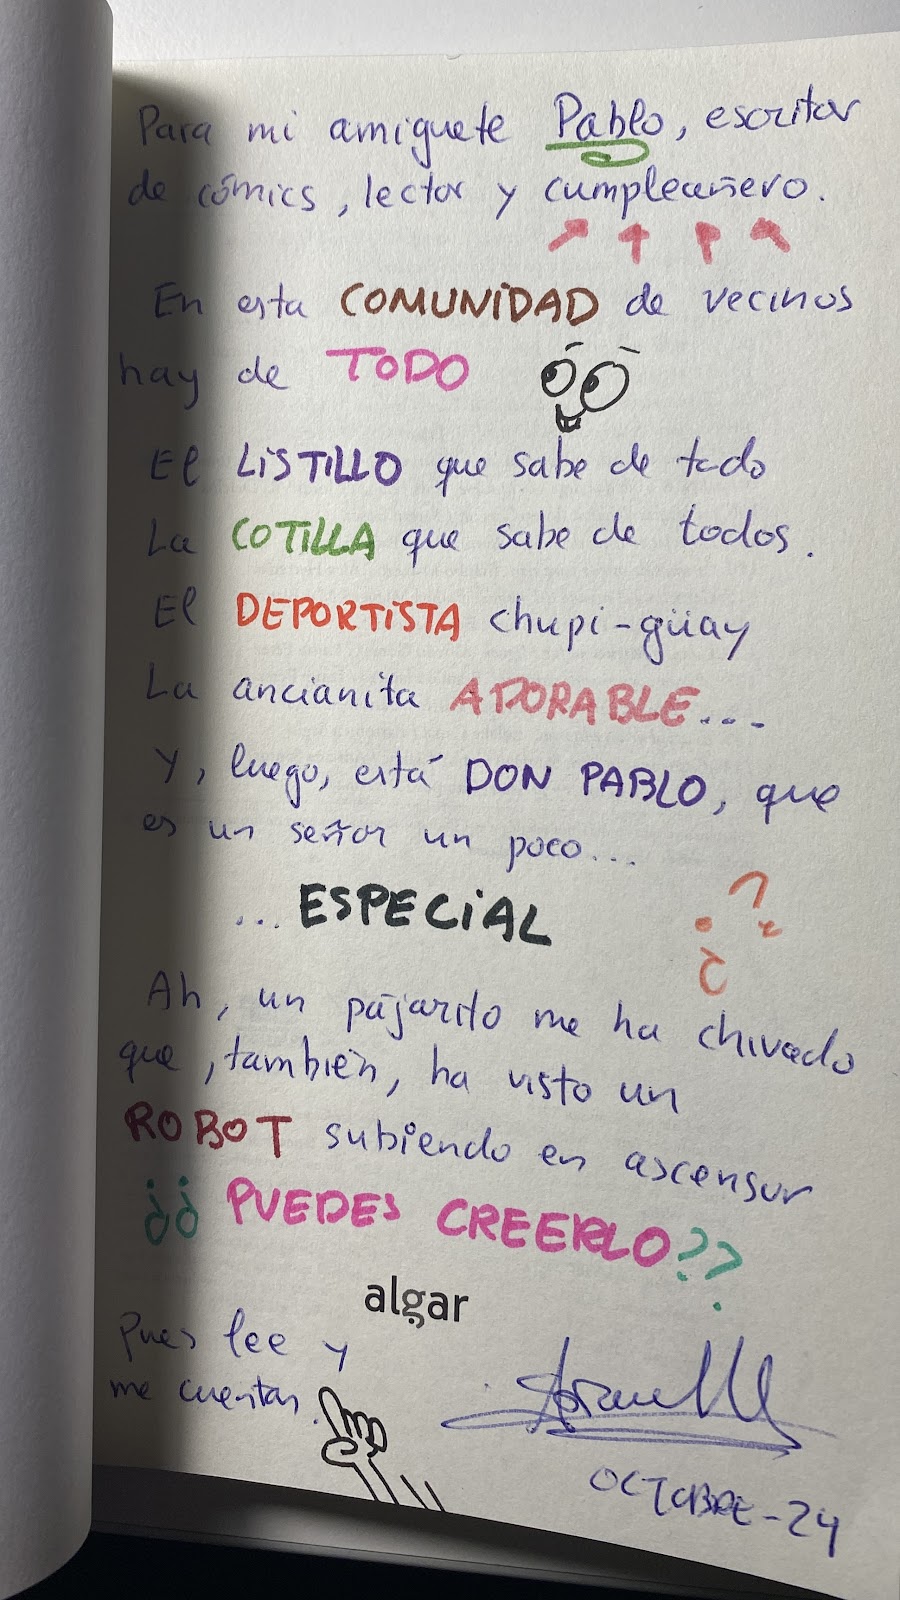 Para mi amiguete Pablo, escritor
de cómics, lector y cumpleañero.
En esta COMUNIDAD de vecinos
hay de TODO
El LISTILLO que sabe de todo
La COTILLA que sabe de todos.
El DEPORTISTA chupi-güay
La ancianita ADORABLE...
Y, luego, está DON PABLO, que
es un señor un poco...
...ESPECIAL
¿?
Ah, un pajarito me ha chivado
que, también, ha visto un
ROBOT subiendo en ascensor
¿¿PUEDES CREERLO??
algar
Pues lee y
me cuentas.
OCTUBRE-24